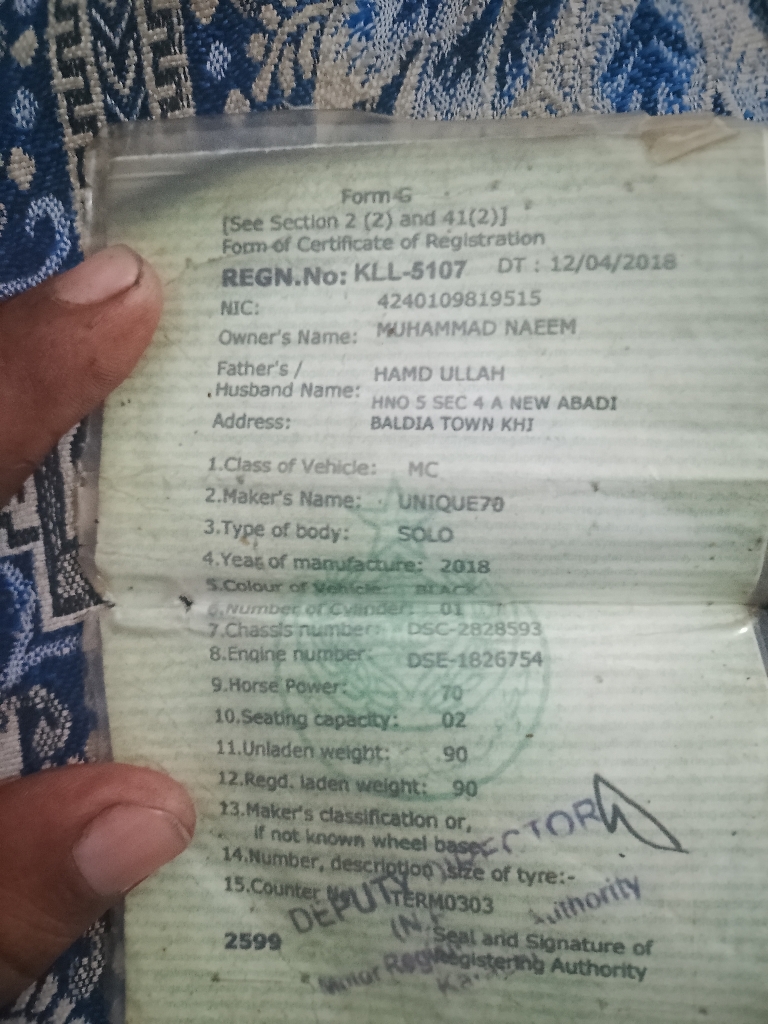 Form-G
[See Section 2 (2) and 41(2)]
Form of Certificate of Registration
REGN.No: KLL-5107 DT : 12/04/2018
NIC: 4240109819515
Owner's Name: MUHAMMAD NAEEM
Father's /
Husband Name: HAMD ULLAH
HNO 5 SEC 4 A NEW ABADI
Address: BALDIA TOWN KHI
1.Class of Vehicle: MC
2.Maker's Name: UNIQUE70
3.Type of body: SOLO
4.Year of manufacture: 2018
5.Colour of Vehicle: BLACK
6.Number of Cylinder: 01
7.Chassis number: DSC-2828593
8.Engine number: DSE-1826754
9.Horse Power: 70
10.Seating capacity: 02
11.Unladen weight: 90
12.Regd. laden weight: 90
13.Maker's classification or,
if not known wheel base
14.Number, description size of tyre:-
15.Counter TERM0303
DEPUTY DIRECTOR
Authority
2599
Seal and Signature of
Registering Authority